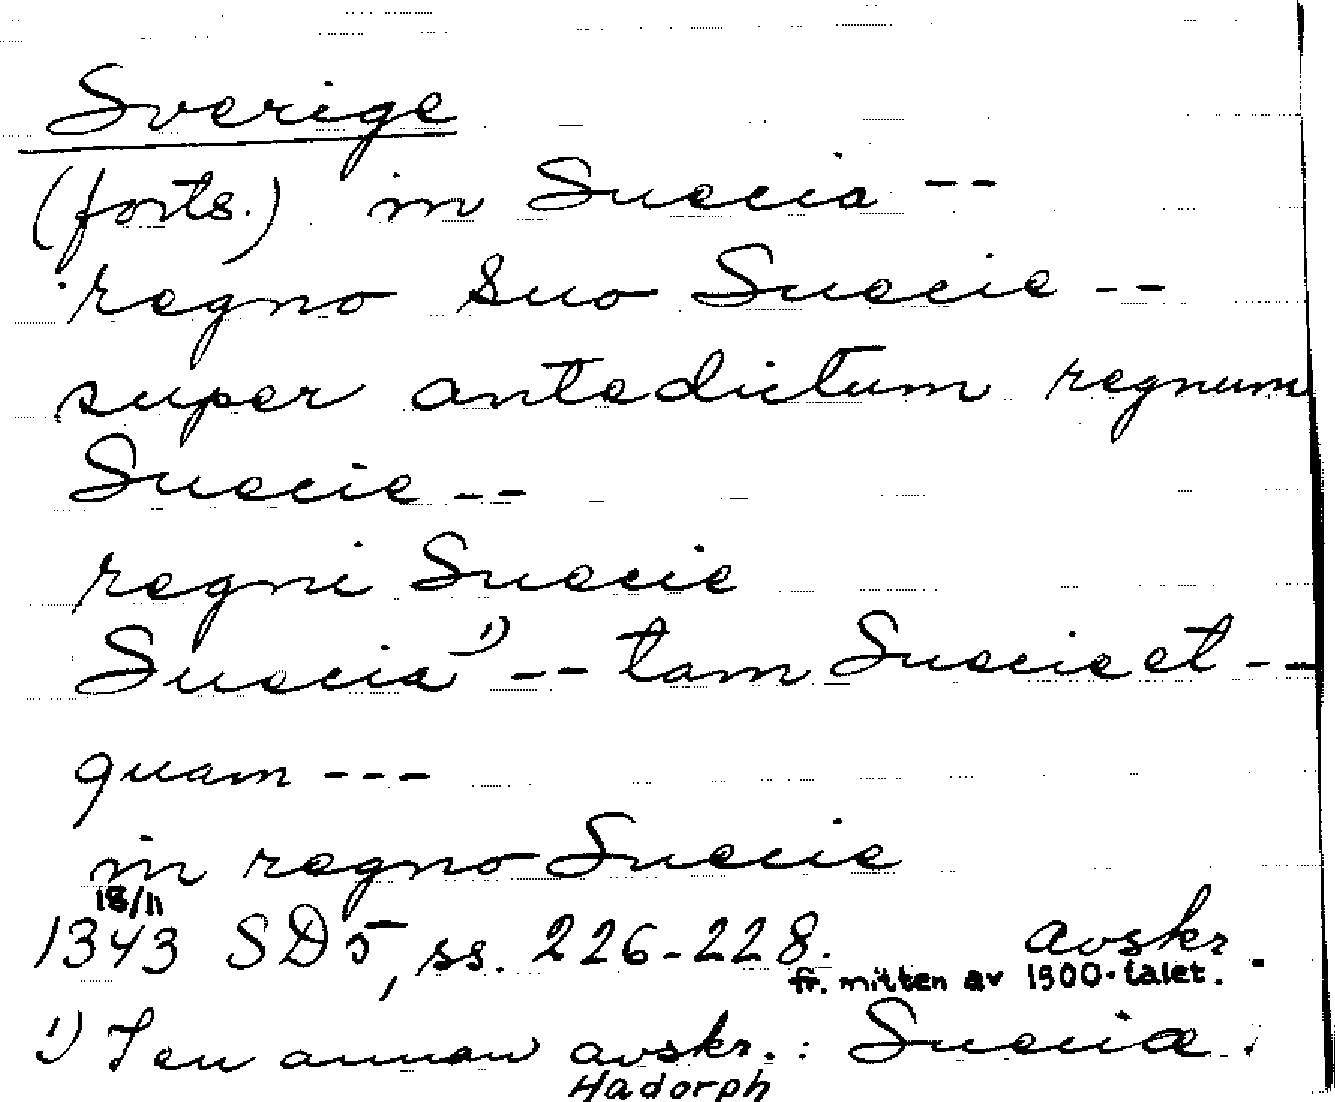 Sverige
(forts.) in Suecia --
regno suo Suecie --
super antedictum regnum
Suecie --
regni Suecie
Suecia 1) -- tam Suecie et --
quam ---
in regno Suecie
18/11
1343 SD 5, ss. 226-228. avskr.
fr. mitten av 1500-talet.
1) I en annan avskr.: Sueciæ.
Hadorph